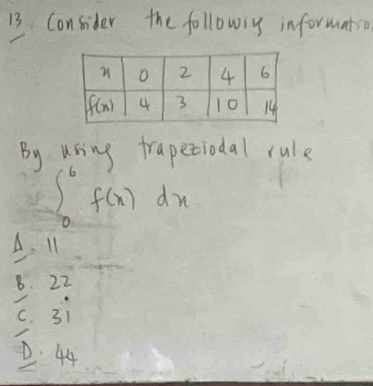 13. Consider the followig informatio
x 0 2 4 6
f(x) 4 3 10 14
By using trapeziodal rule
∫₀⁶ f(x) dx
A. 11
B. 22
C. 31
D. 44